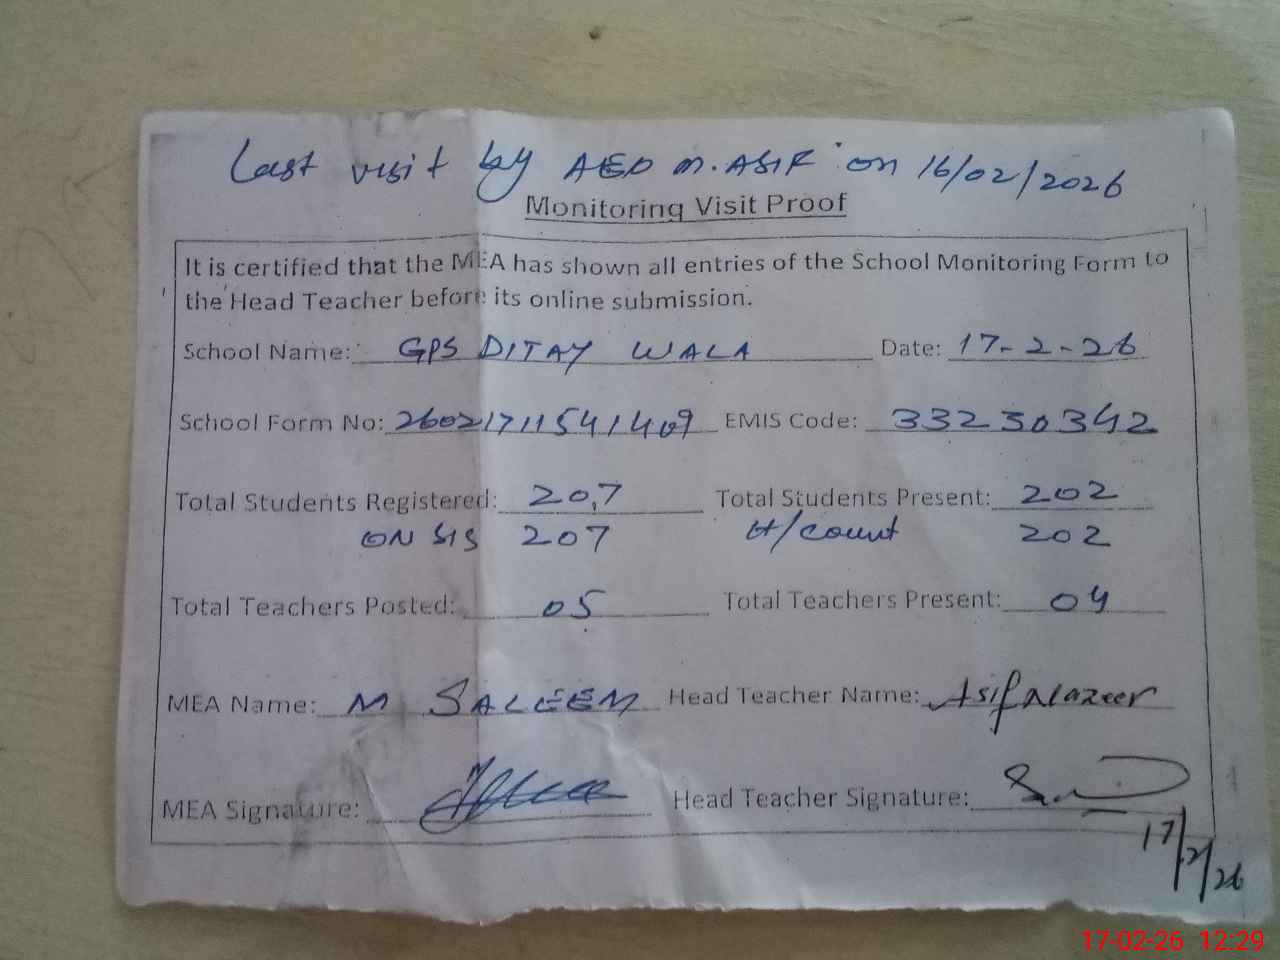 Last visit by AEO M. ASIF on 16/02/2026
Monitoring Visit Proof
It is certified that the MEA has shown all entries of the School Monitoring Form to
the Head Teacher before its online submission.
School Name: GPS DITAY WALA Date: 17-2-26
School Form No: 26021711541409 EMIS Code: 33230342
Total Students Registered: 207 Total Students Present: 202
ON SIS 207 H/count 202
Total Teachers Posted: 05 Total Teachers Present: 04
MEA Name: M SALEEM Head Teacher Name: Asif Nazeer
MEA Signature: Head Teacher Signature:
17/2/26
17-02-26 12:29